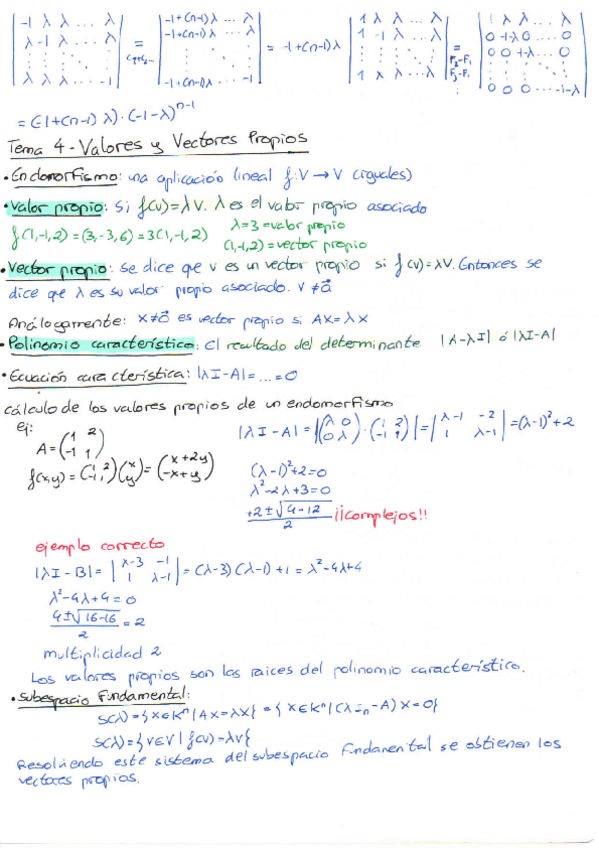 |-1 λ λ ... λ; λ -1 λ ... λ; ⋮; λ λ λ ... -1| =(C1+C2...) |-1+(n-1)λ λ ... λ; -1+(n-1)λ ... λ; ⋮; -1+(n-1)λ ... -1| = -1+(n-1)λ |1 λ λ ... λ; 1 -1 λ ... λ; ⋮; 1 λ λ ... λ| =(F2-F1 F3-F1 ⋮) |1 λ λ ... λ; 0 -1-λ 0 ... 0; 0 0 -1-λ ... 0; ⋮; 0 0 0 ... -1-λ|
= (-1+(n-1)λ)·(-1-λ)ⁿ⁻¹
Tema 4 - Valores y Vectores Propios
• Endomorfismo: una aplicación lineal f: V → V (iguales)
• Valor propio: Si f(v)=λv. λ es el valor propio asociado
f(1,-1,2)=(3,-3,6)=3(1,-1,2) λ=3=valor propio
(1,-1,2)=vector propio
• Vector propio: se dice que v es un vector propio si f(v)=λv. Entonces se
dice que λ es su valor propio asociado. v≠0⃗
Análogamente: x≠0⃗ es vector propio si Ax=λx
• Polinomio característico: El resultado del determinante |A-λI| ó |λI-A|
• Ecuación característica: |λI-A|=...=0
cálculo de los valores propios de un endomorfismo
ej:
A=(1 2; -1 1) |λI-A|=|(λ 0; 0 λ)·(1 2; -1 1)|=|λ-1 -2; 1 λ-1|=(λ-1)²+2
f(x,y)=(1 2; -1 1)(x; y)=(x+2y; -x+y) (λ-1)²+2=0
λ²-2λ+3=0
+2±√4-12 / 2 ¡¡complejos!!
ejemplo correcto
|λI-B|=|λ-3 -1; 1 λ-1|=(λ-3)(λ-1)+1=λ²-4λ+4
λ²-4λ+4=0
4±√16-16 / 2 =2
multiplicidad 2
Los valores propios son las raices del polinomio característico.
• Subespacio Fundamental:
S(λ)={x∈Kⁿ | Ax=λx}={x∈Kⁿ | (λIn-A)x=0}
S(λ)={v∈V | f(v)=λv}
Resolviendo este sistema del subespacio fundamental se obtienen los
vectores propios.